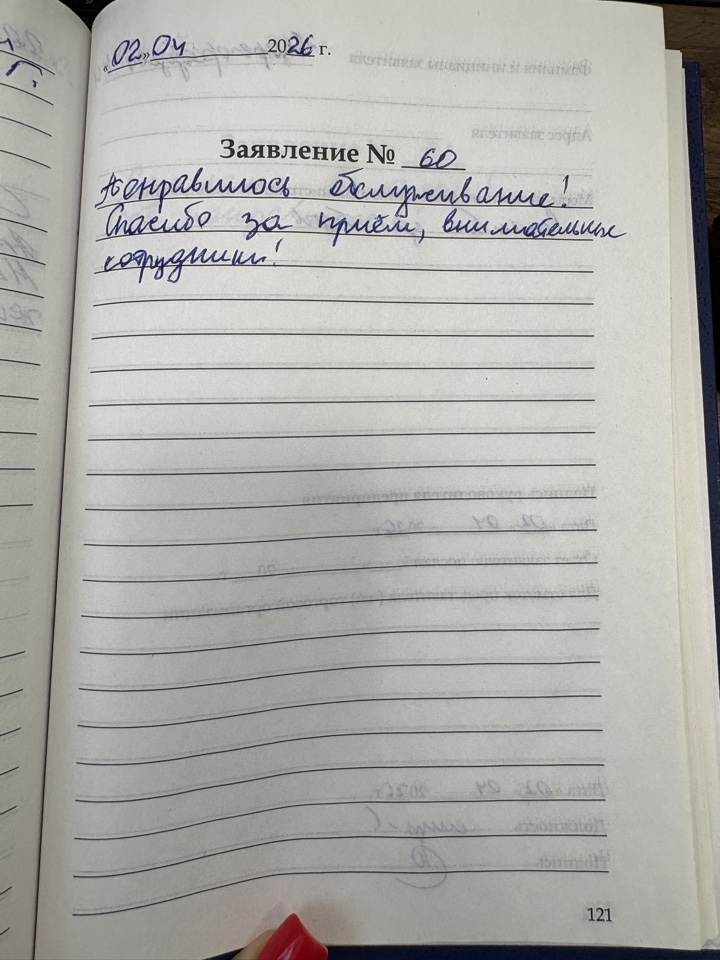 «02» 04 2026 г.
Заявление № 60
Понравилось обслуживание!
Спасибо за приём, внимательные
сотрудники!
121